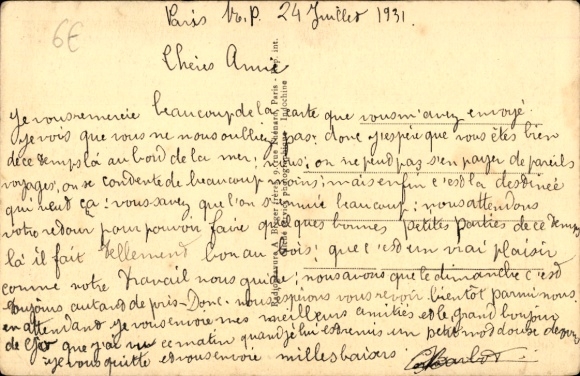 Paris V.P. 24 Juillet 1931.
6€
Chères Amie
je vous remercie beaucoup de la carte que vous m'avez envoyé.
je vois que vous ne nous oubliez pas: donc j'espère que vous êtes bien
de ce temps là au bord de la mer; nous; on ne peud pas s'en payer de pareils
voyages, on se condente de beaucoup moins; mais enfin c'est la destineé
qui veud ça: vous savez que l'on s'ennuie beaucoup: nous attendons
votre redour pour pouvoir faire quelques bonnes petites Parties de ce temps
là il fait tellement bon au bois; que c'est un vrai plaisir
comme notre travail nous quide; nous avons que le dimanche c'est
toujours autand de pris. Donc: nous espérons vous revoir bientôt parmi nous
en attendand je vous envoie mes meilleurs amitiés et le grand bonjour
de que j'ai vu ce matin quand je lui est remis un petit mod
je vous quitte ed vous envoie milles baisers.
Rotogravure A. Breger frères, 9, rue Thénard, Paris - Rep. int.
Cliché Service photographique Indochine